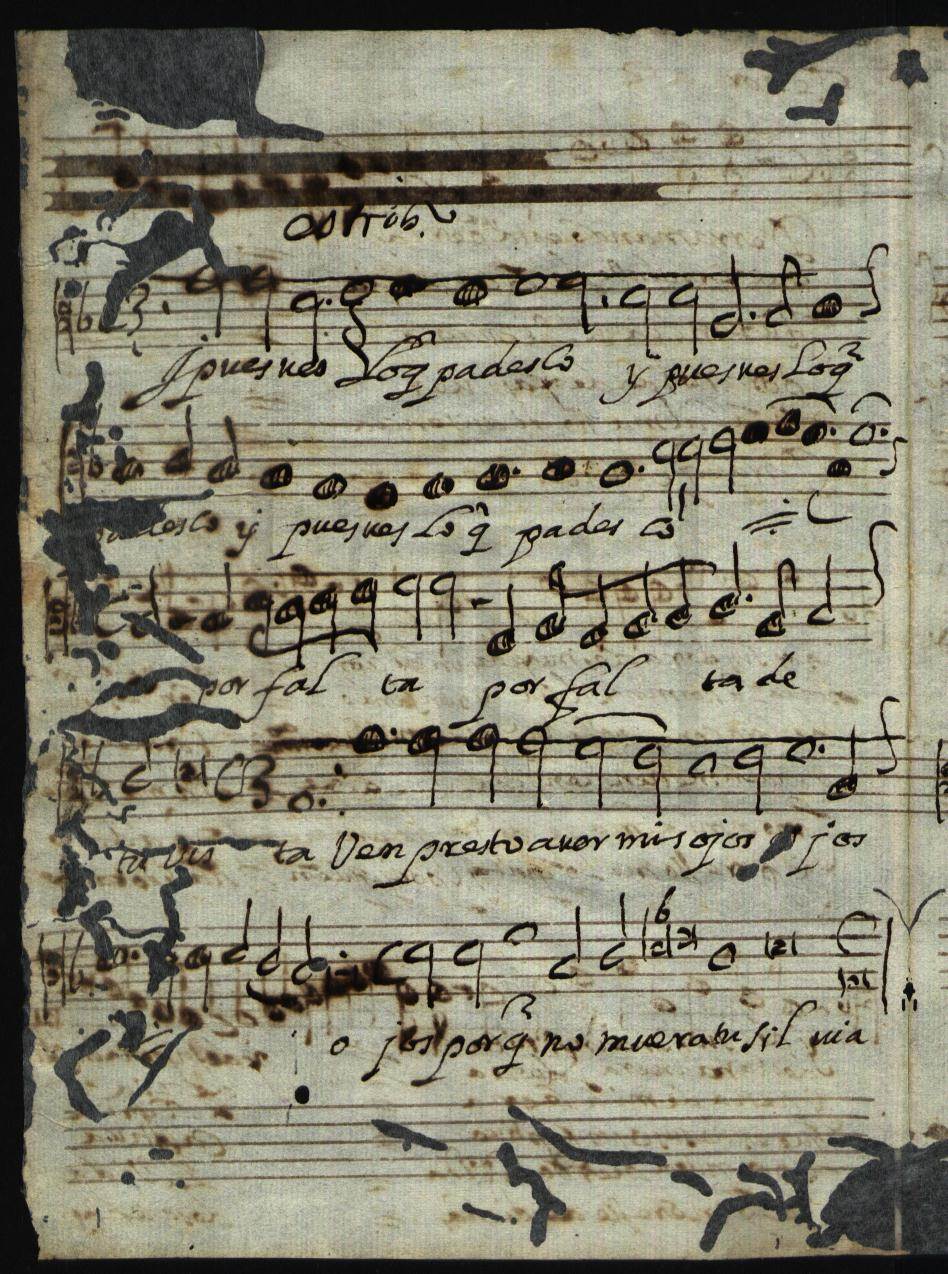 estrib.
pues ves Loq̃ padesco y pues ves Loq̃
padesco y pues ves Loq̃ pades co
por fal ta por fal ta de
ta vis ta Ven presto a ver mis ojos o jos
o jos porq̃ no muera tu sil via